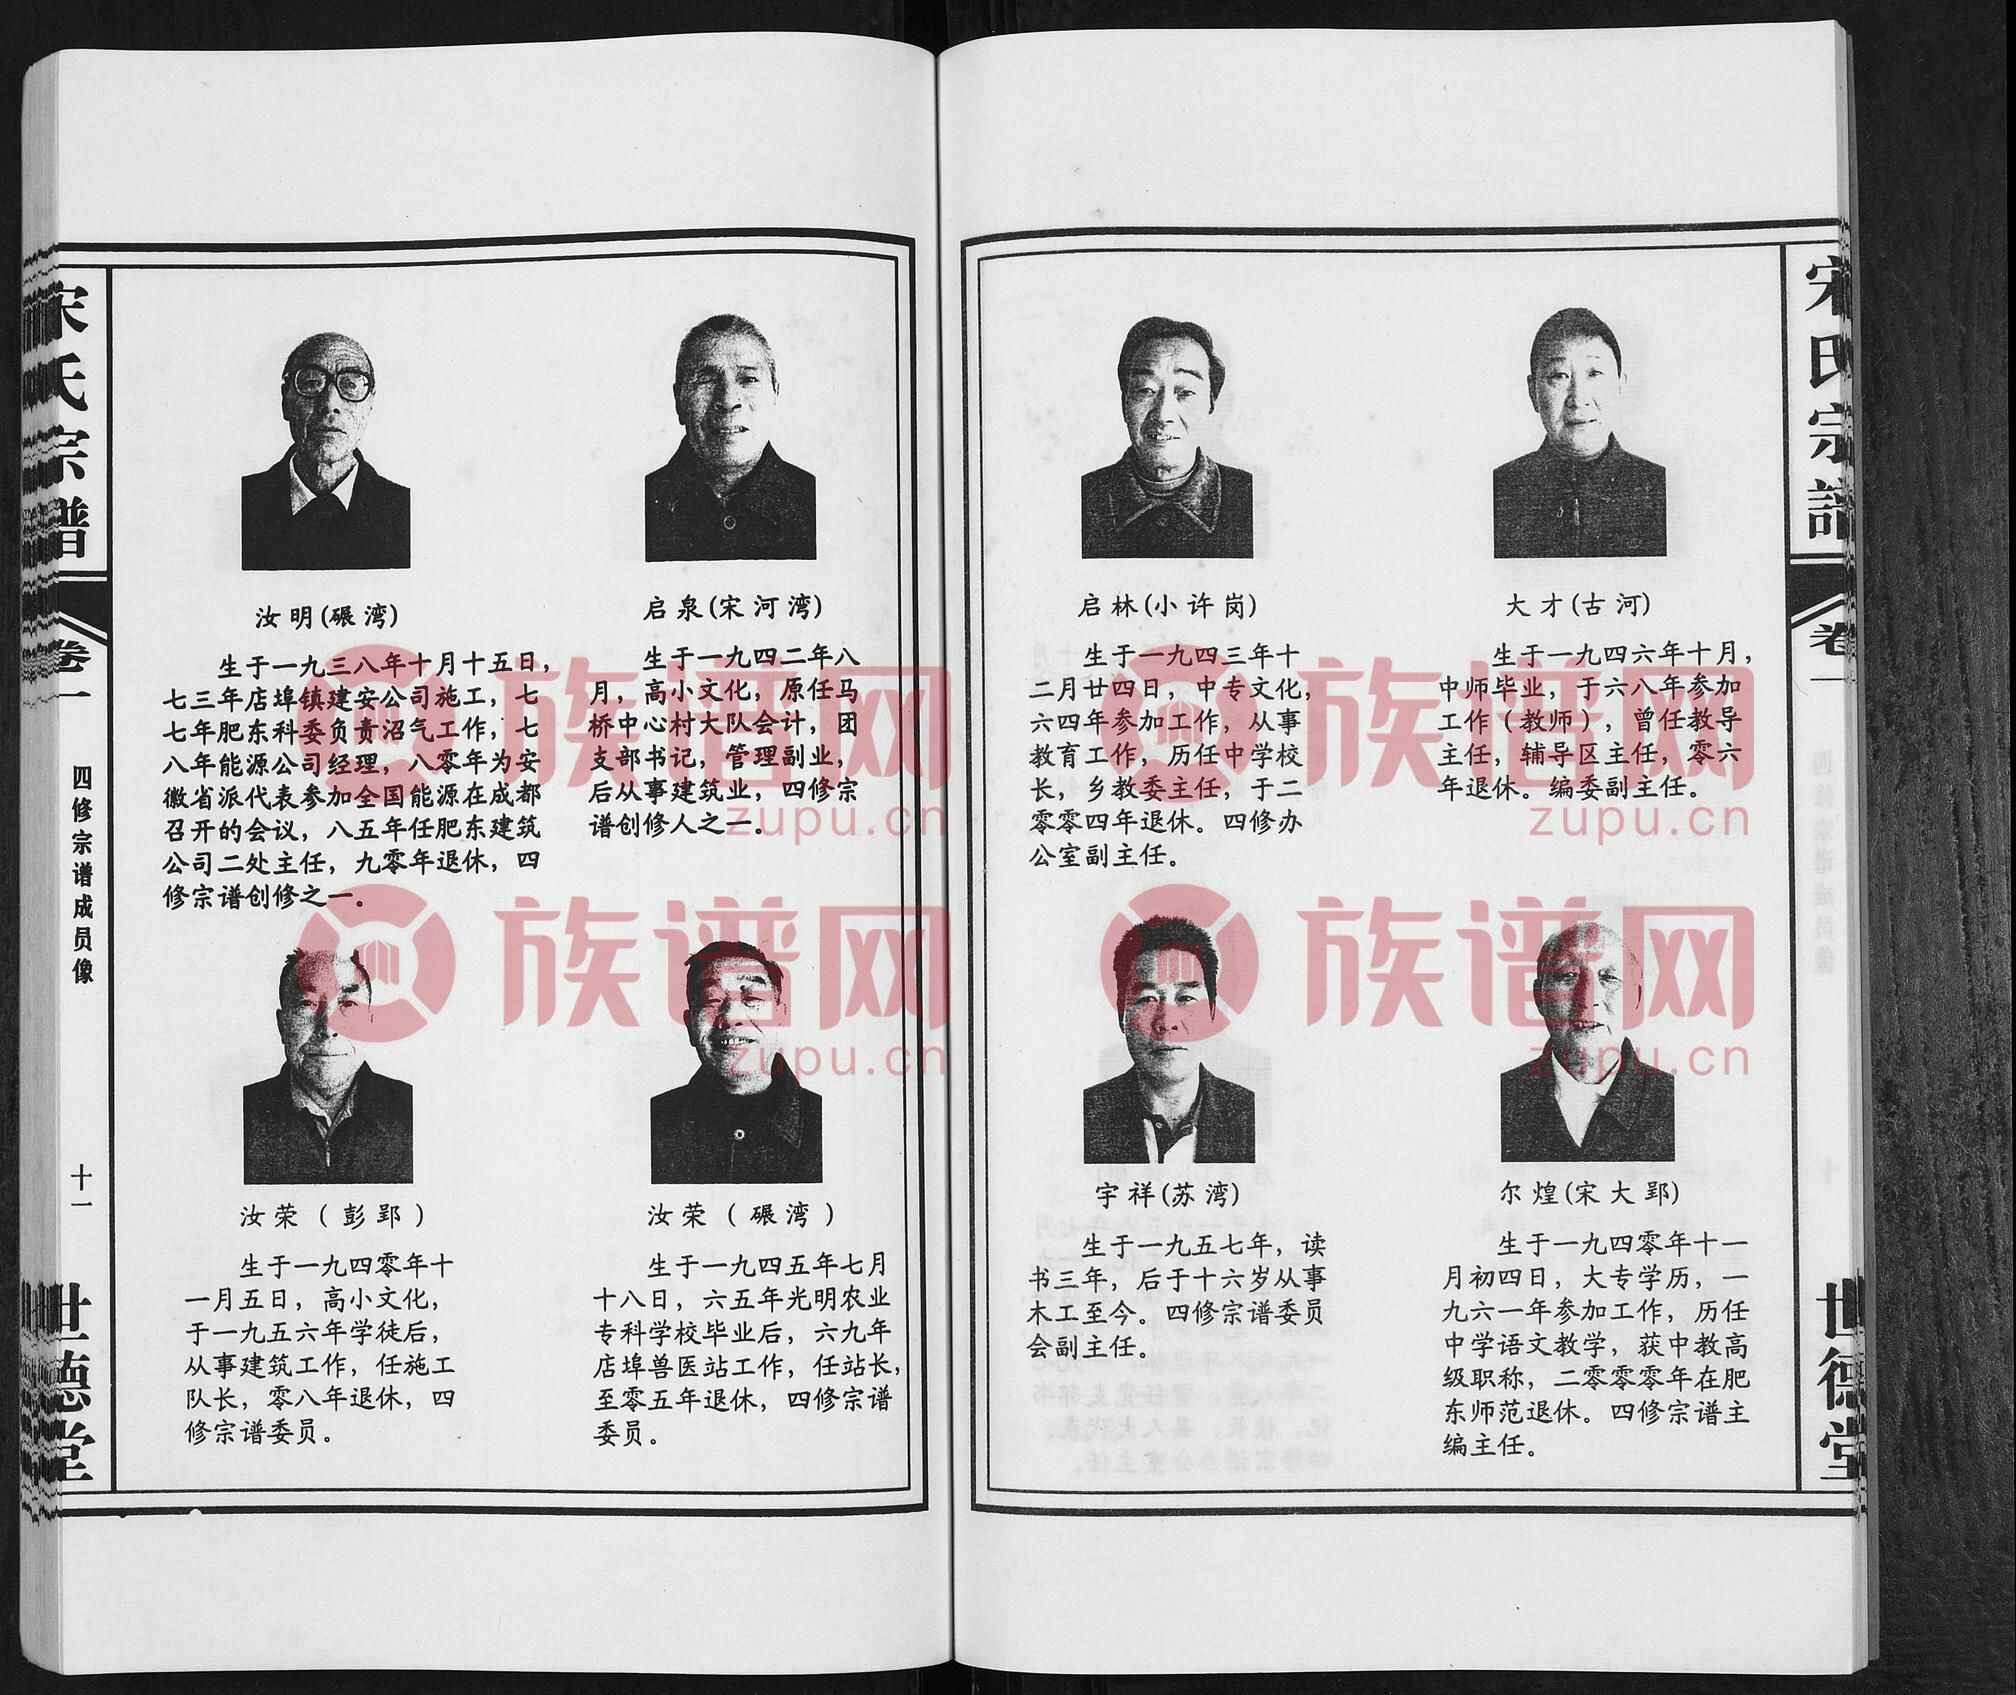 宋氏宗谱
卷一
四修宗谱成员像
十一
世德堂
汝明(碾湾)
生于一九三八年十月十五日，
七三年店埠镇建安公司施工，七
七年肥东科委负责沼气工作，七
八年能源公司经理，八零年为安
徽省派代表参加全国能源在成都
召开的会议，八五年任肥东建筑
公司二处主任，九零年退休，四
修宗谱创修之一。
启泉(宋河湾)
生于一九四二年八
月，高小文化，原任马
桥中心村大队会计，团
支部书记，管理副业，
后从事建筑业，四修宗
谱创修人之一。
汝荣（彭郢）
生于一九四零年十
一月五日，高小文化，
于一九五六年学徒后，
从事建筑工作，任施工
队长，零八年退休，四
修宗谱委员。
汝荣（碾湾）
生于一九四五年七月
十八日，六五年光明农业
专科学校毕业后，六九年
店埠兽医站工作，任站长，
至零五年退休，四修宗谱
委员。
启林(小许岗)
生于一九四三年十
二月廿四日，中专文化，
六四年参加工作，从事
教育工作，历任中学校
长，乡教委主任，于二
零零四年退休。四修办
公室副主任。
大才(古河)
生于一九四六年十月，
中师毕业，于六八年参加
工作（教师），曾任教导
主任，辅导区主任，零六
年退休。编委副主任。
宇祥(苏湾)
生于一九五七年，读
书三年，后于十六岁从事
木工至今。四修宗谱委员
会副主任。
尔煌(宋大郢)
生于一九四零年十一
月初四日，大专学历，一
九六一年参加工作，历任
中学语文教学，获中教高
级职称，二零零零年在肥
东师范退休。四修宗谱主
编主任。
宋氏宗谱
卷一
世德堂
族谱网
zupu.cn
族谱网
zupu.cn
族谱网
zupu.cn
族谱网
zupu.cn